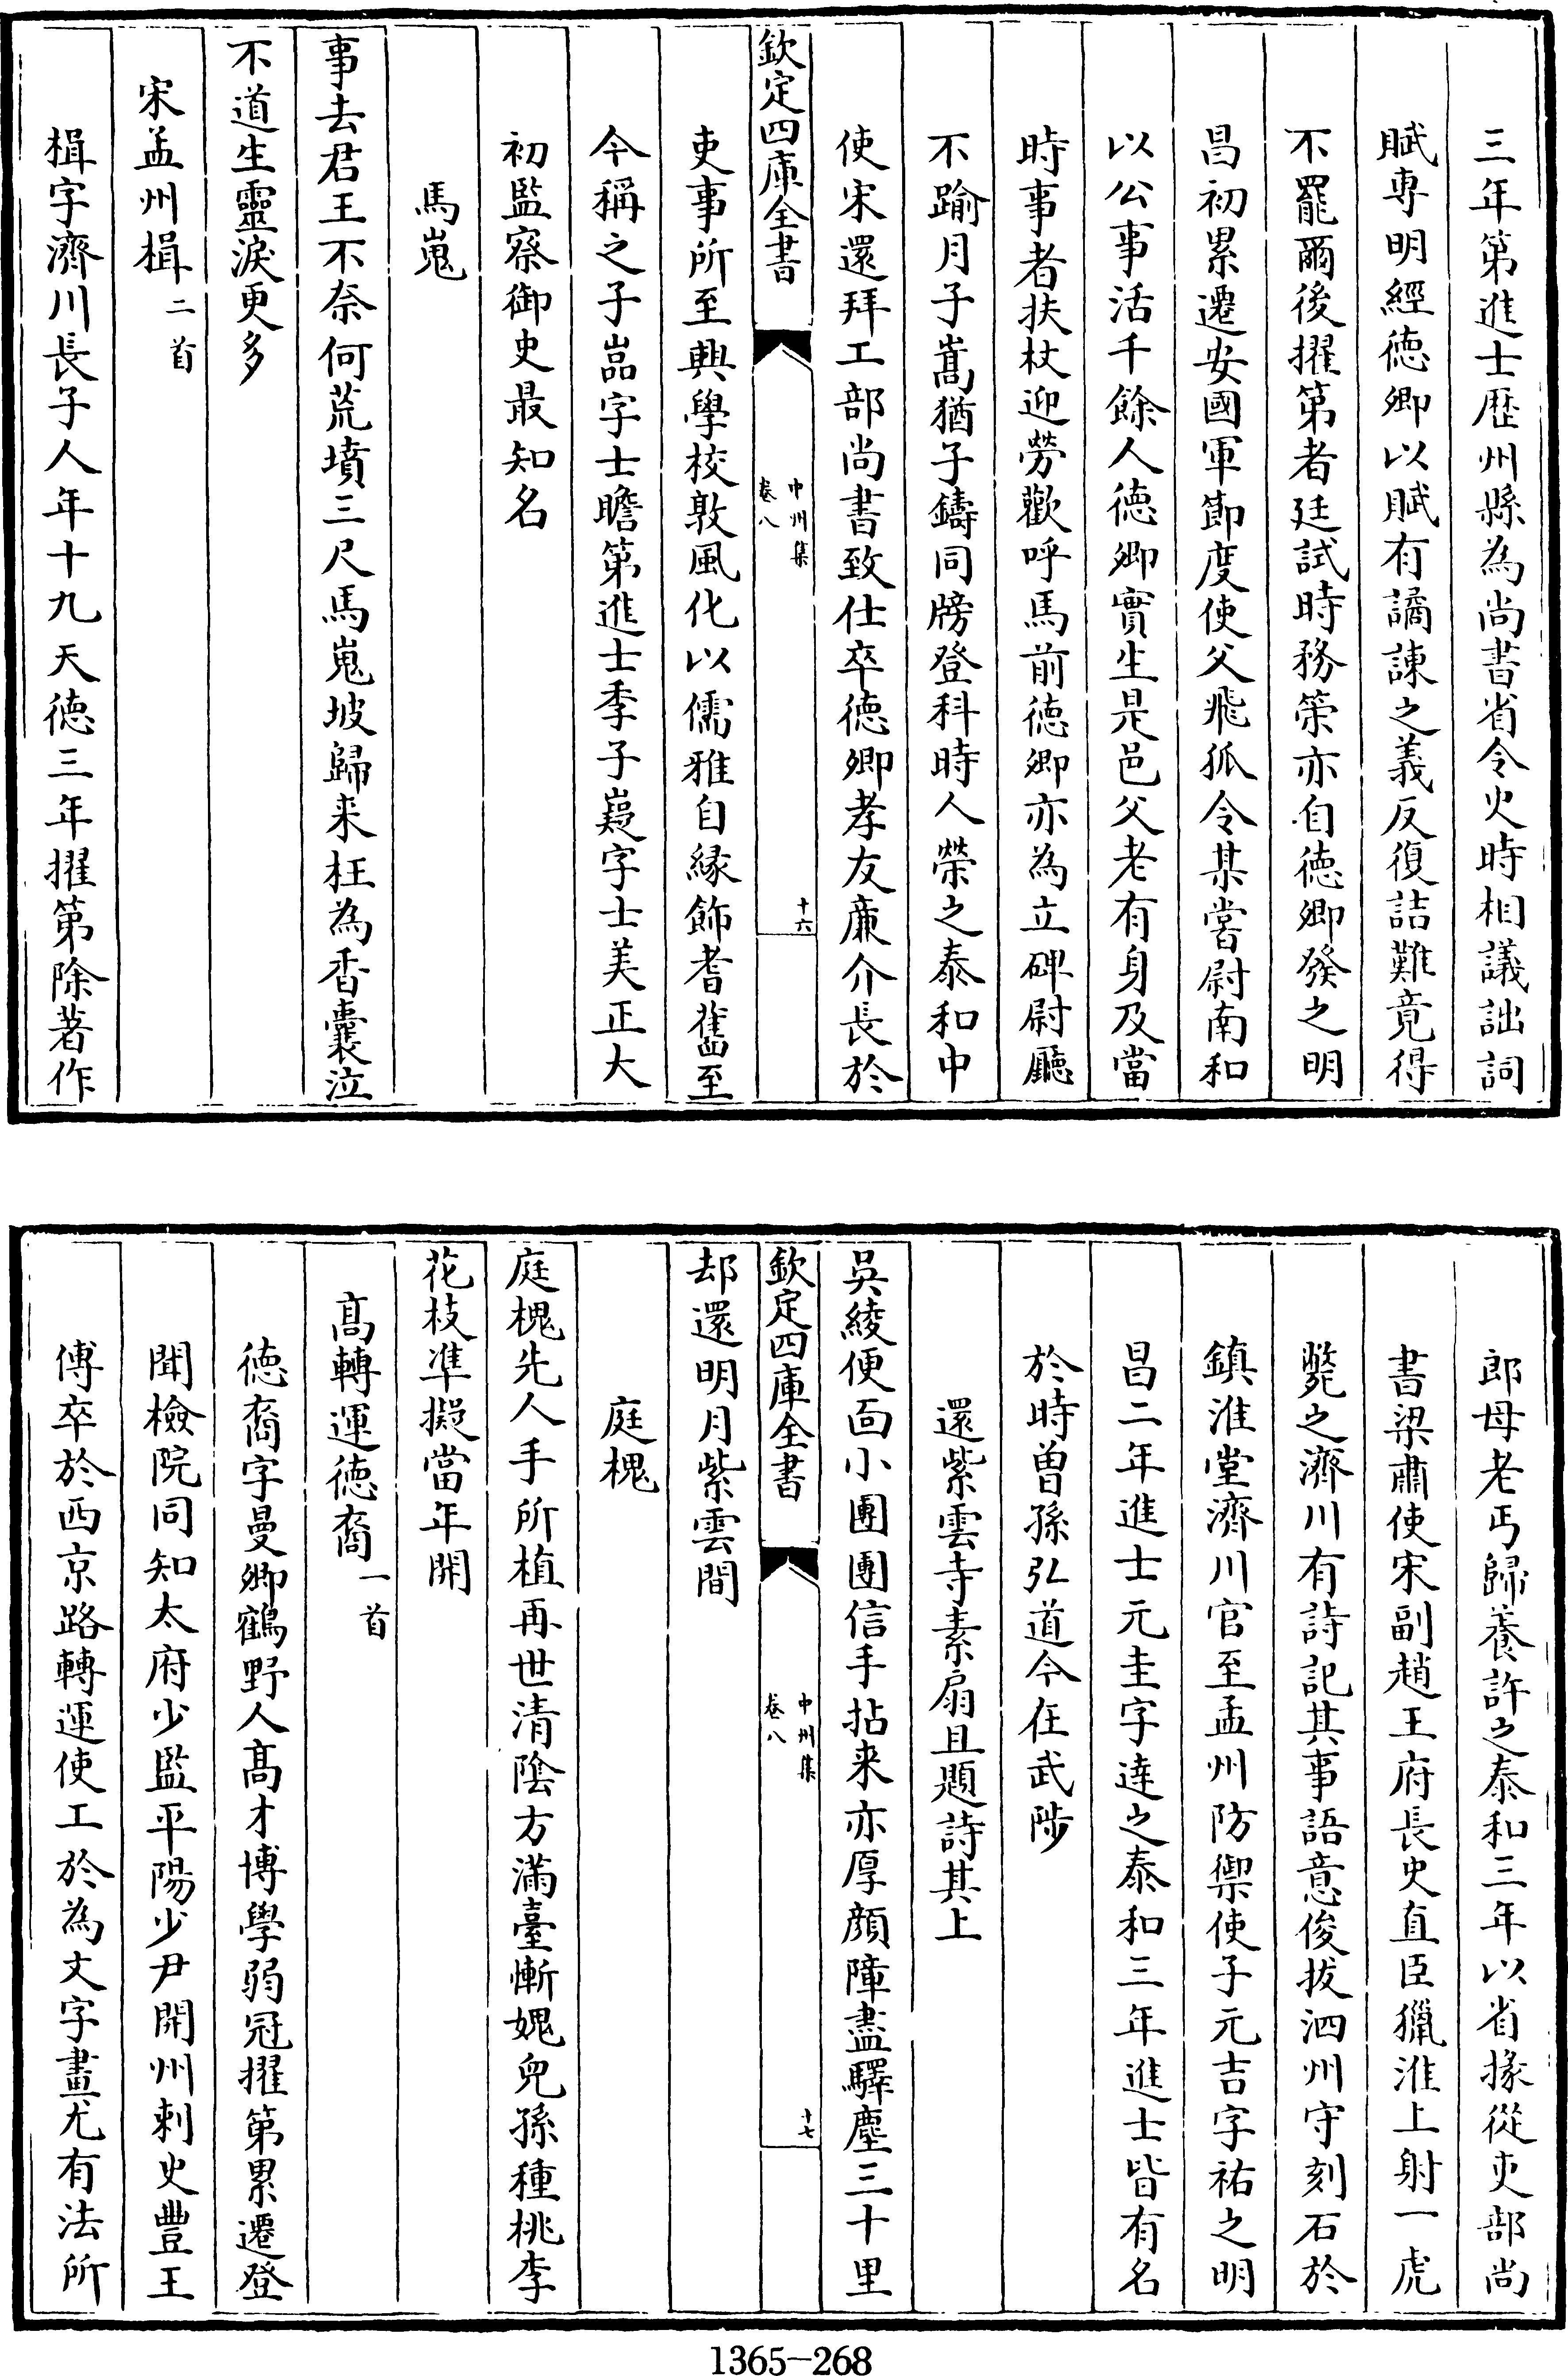 三年第進士歴州縣為尚書省令史時相議詘詞
賦専明經徳卿以賦有譎諫之義反復詰難竟得
不罷爾後擢第者廷試時務策亦自徳卿發之明
昌初累遷安國軍節度使父飛狐令某嘗尉南和
以公事活千餘人徳卿實生是邑父老有身及當
時事者扶杖迎勞歡呼馬前徳卿亦為立碑尉廳
不踰月子嵩猶子鑄同牓登科時人榮之泰和中
使宋還拜工部尚書致仕卒徳卿孝友廉介長於
欽定四庫全書
中州集
卷八
十六
吏事所至興學校敦風化以儒雅自縁飾耆舊至
今稱之子嵓字士瞻第進士季子嶷字士美正大
初監察御史最知名
馬嵬
事去君王不奈何荒墳三尺馬嵬坡歸来枉為香囊泣
不道生靈淚更多
宋孟州楫二首
楫字濟川長子人年十九天徳三年擢第除著作
郎母老丐歸養許之泰和三年以省掾從吏部尚
書梁肅使宋副趙王府長史直臣獵淮上射一虎
斃之濟川有詩記其事語意俊拔泗州守刻石於
鎮淮堂濟川官至孟州防禦使子元吉字祐之明
昌二年進士元圭字達之泰和三年進士皆有名
於時曽孫弘道今在武陟
還紫雲寺素扇且題詩其上
吳綾便面小團團信手拈来亦厚顔障盡驛塵三十里
欽定四庫全書
中州集
卷八
十七
却還明月紫雲間
庭槐
庭槐先人手所植再世清陰方滿臺慚媿兒孫種桃李
花枝準擬當年開
髙轉運徳裔一首
徳裔字曼卿鶴野人髙才博學弱冠擢第累遷登
聞檢院同知太府少監平陽少尹開州刺史豐王
傅卒於西京路轉運使工於為文字畫尤有法所
1365-268